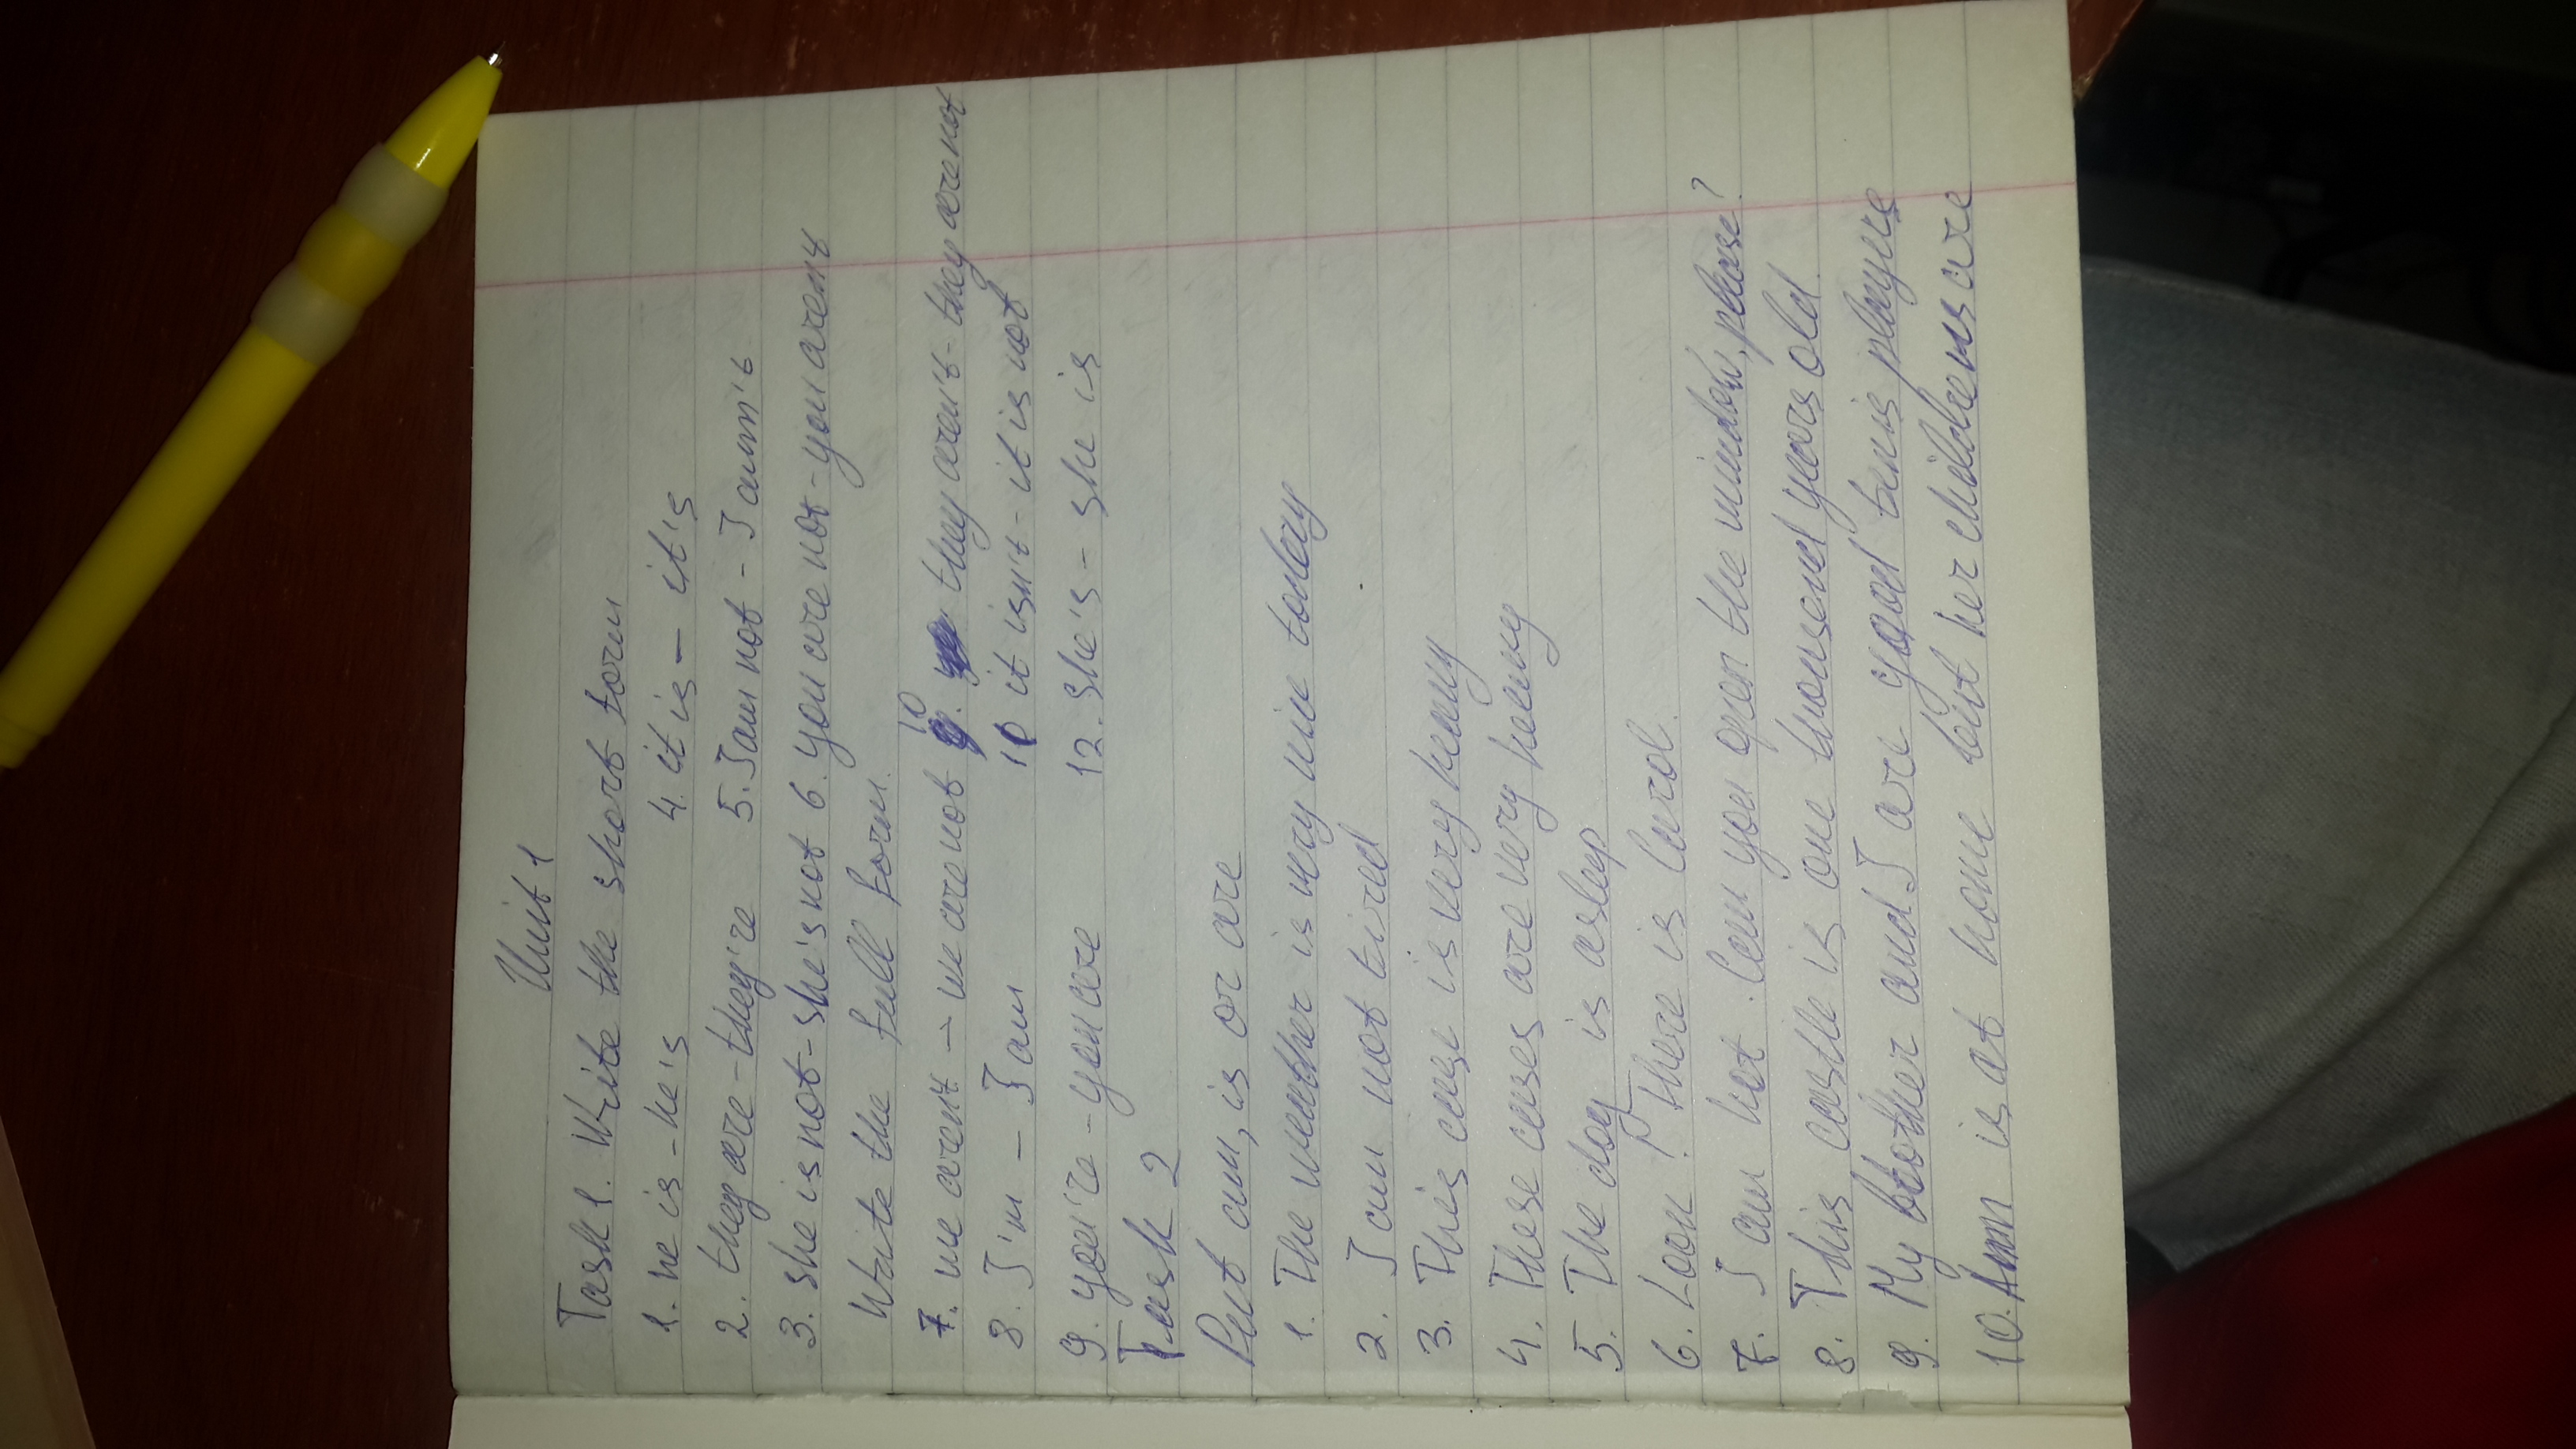 Unit 1
Task 1. Write the short form
1. he is - he's 4. it is - it's
2. they are - they're 5. I am not - I amn't
3. she is not - she's not 6. you are not - you aren't
Write the full form.
7. we aren't - we are not 10. they aren't - they are not
8. I'm - I am 11 it isn't - it is not
9. you're - you are 12. she's - she is
Task 2
Put am, is or are
1. The weather is very nice today
2. I am not tired
3. This case is very heavy
4. These cases are very heavy
5. The dog is asleep
6. Look! There is Carol.
7. I am hot. Can you open the window, please?
8. This castle is one thousand years old.
9. My brother and I are good tenis players
10. Ann is at home but her childrens are